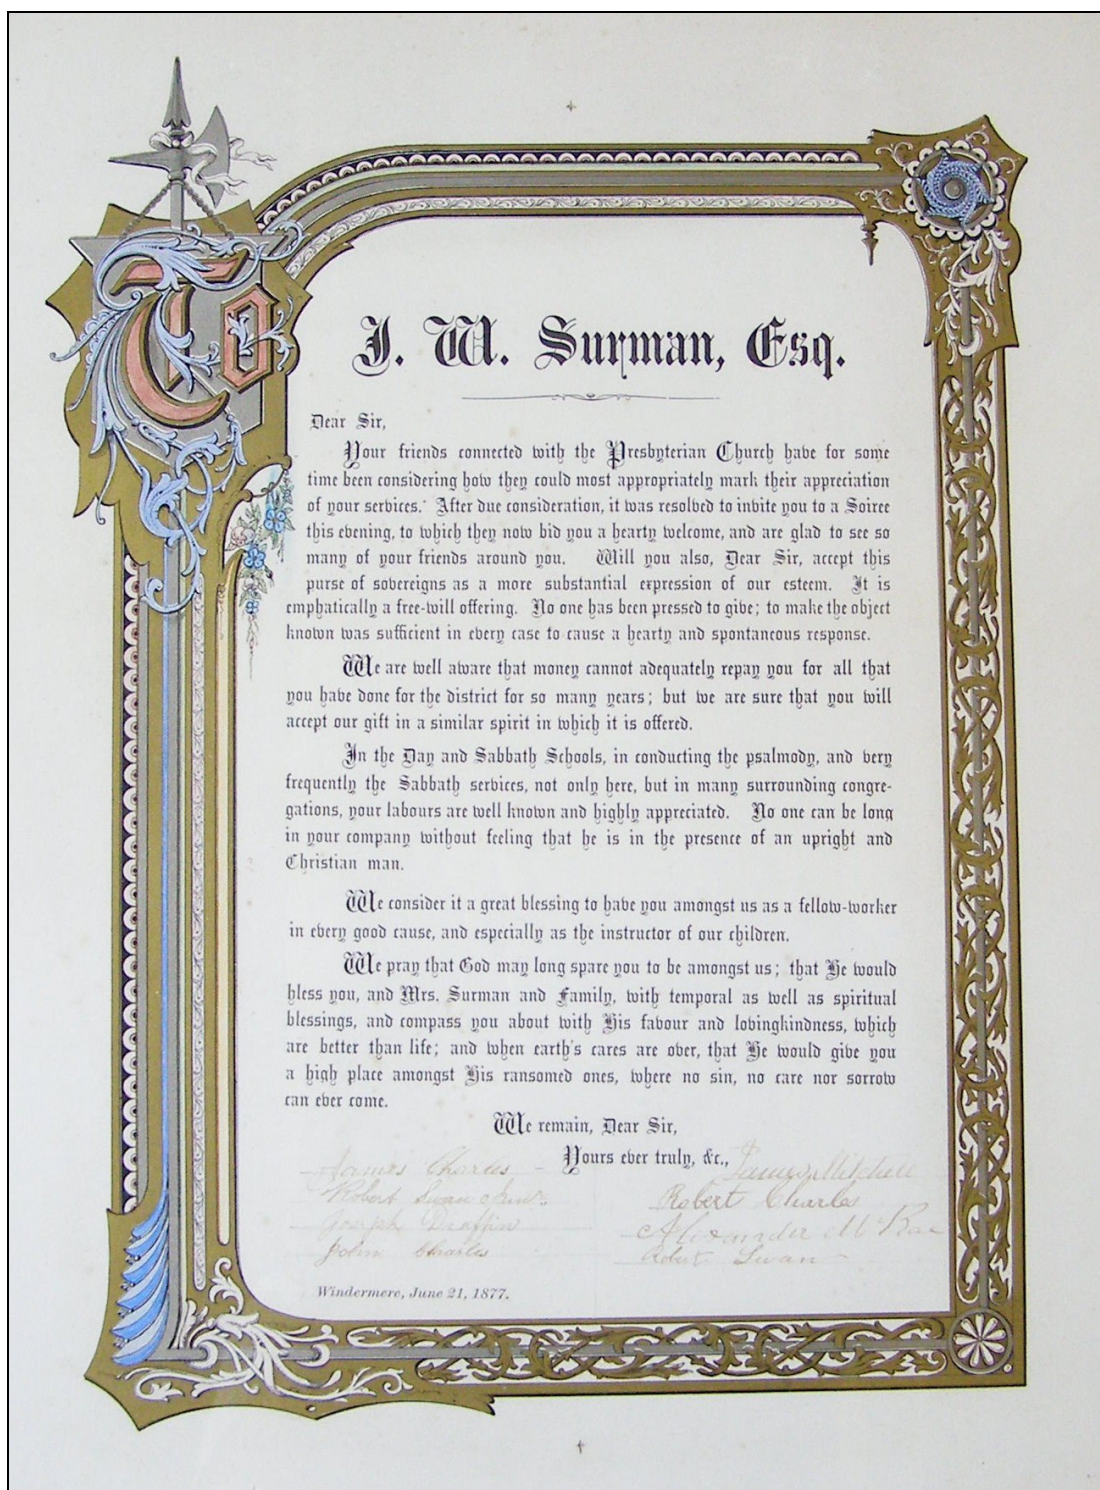 To
J. W. Surman, Esq.
Dear Sir,
Your friends connected with the Presbyterian Church have for some
time been considering how they could most appropriately mark their appreciation
of your services. After due consideration, it was resolved to invite you to a Soiree
this evening, to which they now bid you a hearty welcome, and are glad to see so
many of your friends around you. Will you also, Dear Sir, accept this
purse of sovereigns as a more substantial expression of our esteem. It is
emphatically a free-will offering. No one has been pressed to give; to make the object
known was sufficient in every case to cause a hearty and spontaneous response.
We are well aware that money cannot adequately repay you for all that
you have done for the district for so many years; but we are sure that you will
accept our gift in a similar spirit in which it is offered.
In the Day and Sabbath Schools, in conducting the psalmody, and very
frequently the Sabbath services, not only here, but in many surrounding congre-
gations, your labours are well known and highly appreciated. No one can be long
in your company without feeling that he is in the presence of an upright and
Christian man.
We consider it a great blessing to have you amongst us as a fellow-worker
in every good cause, and especially as the instructor of our children.
We pray that God may long spare you to be amongst us; that He would
bless you, and Mrs. Surman and Family, with temporal as well as spiritual
blessings, and compass you about with His favour and lovingkindness, which
are better than life; and when earth's cares are over, that He would give you
a high place amongst His ransomed ones, where no sin, no care nor sorrow
can ever come.
We remain, Dear Sir,
Yours ever truly, &c.,
James Charles James Mitchell
Robert Swan Junr. Robert Charles
Joseph Draffin Alexander McRae
John Charles Robt. Swan
Windermere, June 21, 1877.